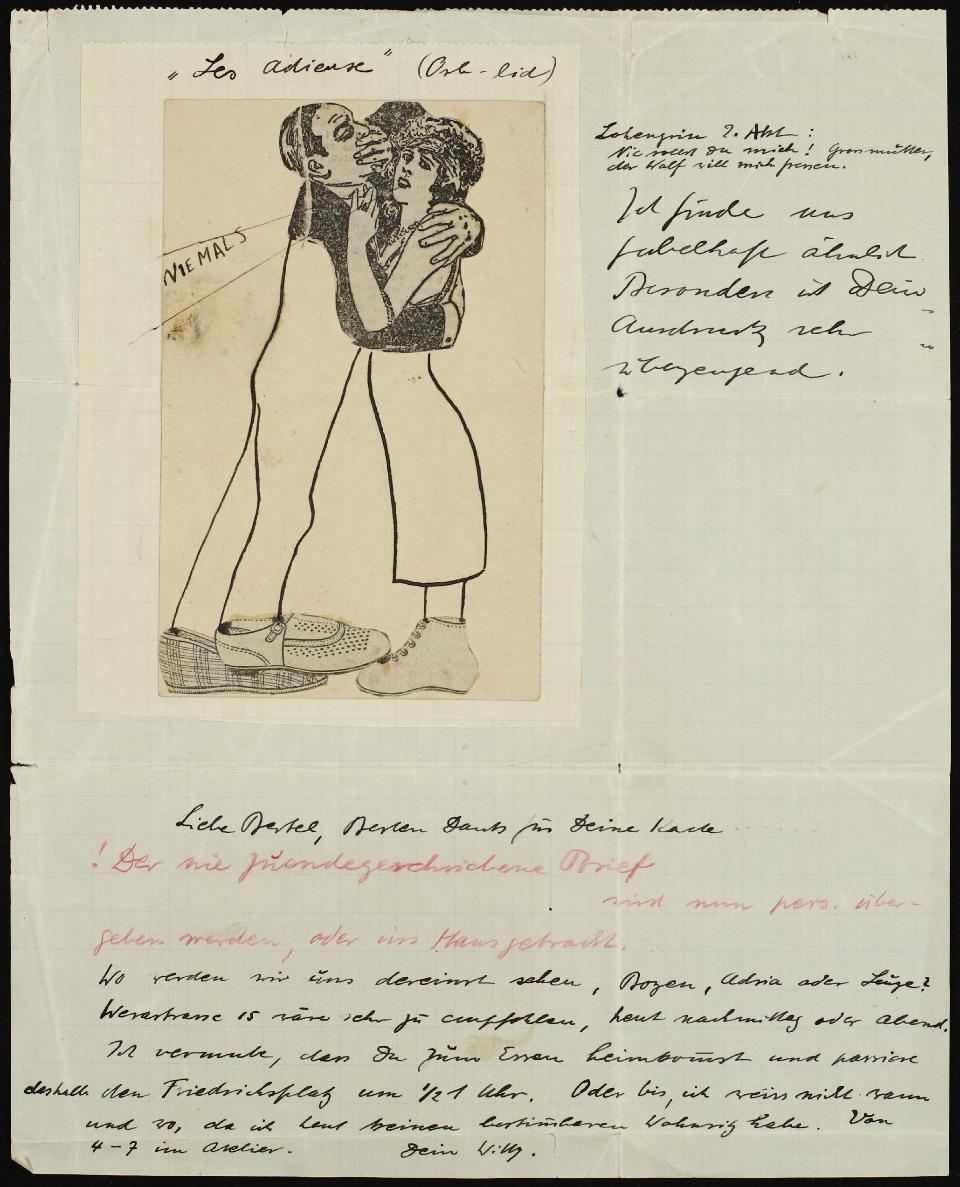 „Les adieux" (Ost-lid)
NIEMALS
Lohengrin 2. Akt :
Nie sollst Du mich! Grossmutter,
der Wolf will mich fressen.
Ich finde uns
fabelhaft ähnlich.
Besonders ist Dein
Ausdruck sehr
überzeugend.
Liebe Bertel, Besten Dank für Deine Karte
! Der nie zuendegeschriebene Brief
wird nun pers. über-
geben werden, oder ins Haus gebracht.
Wo werden wir uns dereinst sehen, Bozen, Adria oder ?
Werastrasse 15 wäre sehr zu empfehlen, heut nachmittag oder abend.
Ich vermute, dass Du zum Essen heimkommst und passiere
deshalb den Friedrichsplatz um ½ 1 Uhr. Oder bis, ich weiss nicht wann
und wo, da ich heut keinen bestimmbaren Wohnsitz habe. Von
4-7 im Atelier. Dein Willy.